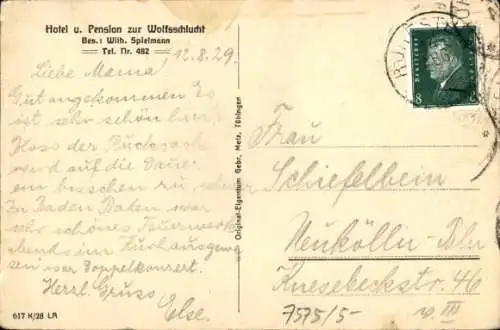 Hotel u. Pension zur Wolfsschlucht
Bes.: Wilh. Spielmann
Tel. Nr. 482
12.8.29.
Liebe Mama!
Gut angekommen. Es
ist sehr schön hier.
Bloss der Rucksack
wird auf die Dauer
ein bisschen zu schwer
In Baden Baden war
sehr schönes Feuerwerk
abends im Kurhausgewe
sen war Doppelkonzert.
Herzl. Gruss
Else.
617 K/28 LR
Original-Eigentum Gebr. Metz, Tübingen
Deutsches Reich
8
Frau
Schiefelbein
Neukölln-Bln
Knesebeckstr. 46
v III
7575/5-